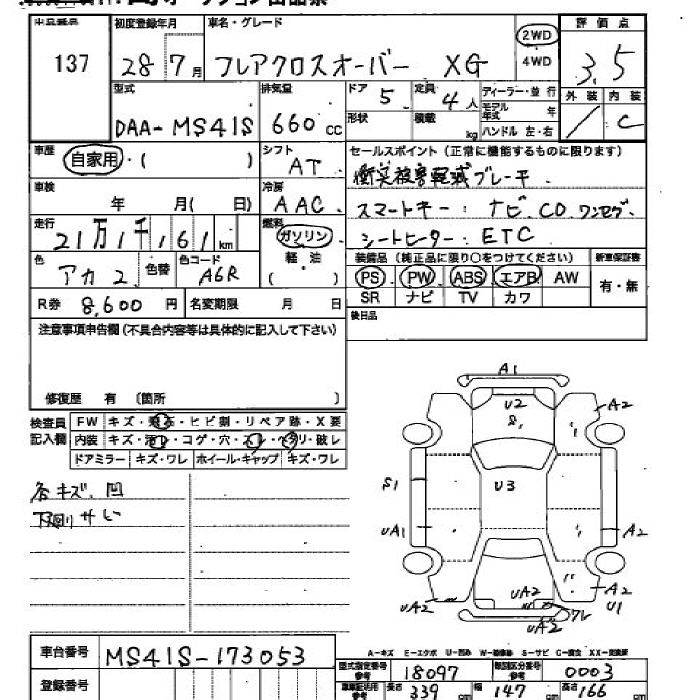 出品番号 137
初度登録年月 28年7月
車名・グレード フレアクロスオーバー XG
2WD
4WD
評価点 3.5
外装 / 内装 C
型式 DAA-MS41S
排気量 660 cc
ドア 5
定員 4人
形状
積載 kg
ディーラー・並行
モデル年式 年
ハンドル 左・右
車歴 自家用・( )
シフト AT
車検 年 月( 日)
冷房 AAC
走行 21万1千161km
燃料 ガソリン 軽油 ( )
色 アカ2 色替
色コード A6R
R券 8,600円
名変期限 月 日
セールスポイント(正常に機能するものに限ります)
衝突被害軽減ブレーキ.
スマートキー: ナビ. CD. ワンセグ.
シートヒーター: ETC
装備品(純正品に限り○をつけてください)
新車保証書
PS・PW・ABS・エアB・AW
SR ナビ TV カワ
有・無
後日品
注意事項申告欄(不具合内容等は具体的に記入して下さい)
修復歴 有 〔箇所 〕
検査員記入欄
FW キズ・飛石・ヒビ割・リペア跡・X要
内装 キズ・汚レ・コゲ・穴・スレ・ヘタリ・破レ
ドアミラー キズ・ワレ ホイール・キャップ キズ・ワレ
各キズ、凹
下廻りサビ
A1
U2
A2
S1
U3
UA1
A2
A2
U1
UA2
UA2
UA2
ワレ
A-キズ E-エクボ U-凹み W-補修跡 S-サビ C-腐食 XX-交換済
車台番号 MS41S-173053
登録番号
型式指定番号 参考 18097
類別区分番号 参考 0003
車車証明用 参考 長さ 339 幅 147 高さ 166